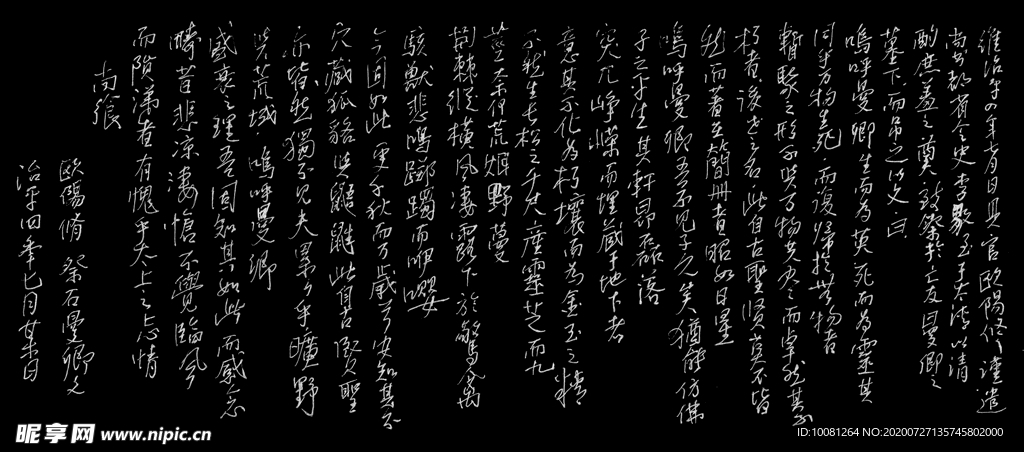 維治平四年七月日具官歐陽修謹遣
尚書都省令史李敭至于太清以清
酌庶羞之奠致祭於亡友曼卿之
墓下而吊之以文曰
嗚呼曼卿生而為英死而為靈其
同乎萬物生死而復歸於無物者
暫聚之形不與萬物共盡而卓然其不
朽者後世之名此自古聖賢莫不皆
然而著在簡冊者昭如日星
嗚呼曼卿吾不見子久矣猶能仿佛
子之平生其軒昂磊落
突兀崢嶸而埋藏于地下者
意其不化為朽壤而為金玉之精
不然生長松之千尺產靈芝而九
莖奈何荒煙野蔓
荊棘縱橫風淒露下於鶯萬
駭獸悲鳴躑躅而咿嚶
今固如此更千秋而萬歲兮安知其不
穴藏狐貉與鼯鼪此自古聖
亦皆然獨不見夫纍纍乎曠野
與荒城嗚呼曼卿
盛衰之理吾固知其如此而感念
疇昔悲涼悽愴不覺臨風
而隕涕者有愧乎太上之忘情
尚饗
歐陽脩 祭石曼卿文
治平四年七月某日
昵享网 www.nipic.cn
ID:10081264 NO:20200727135745802000